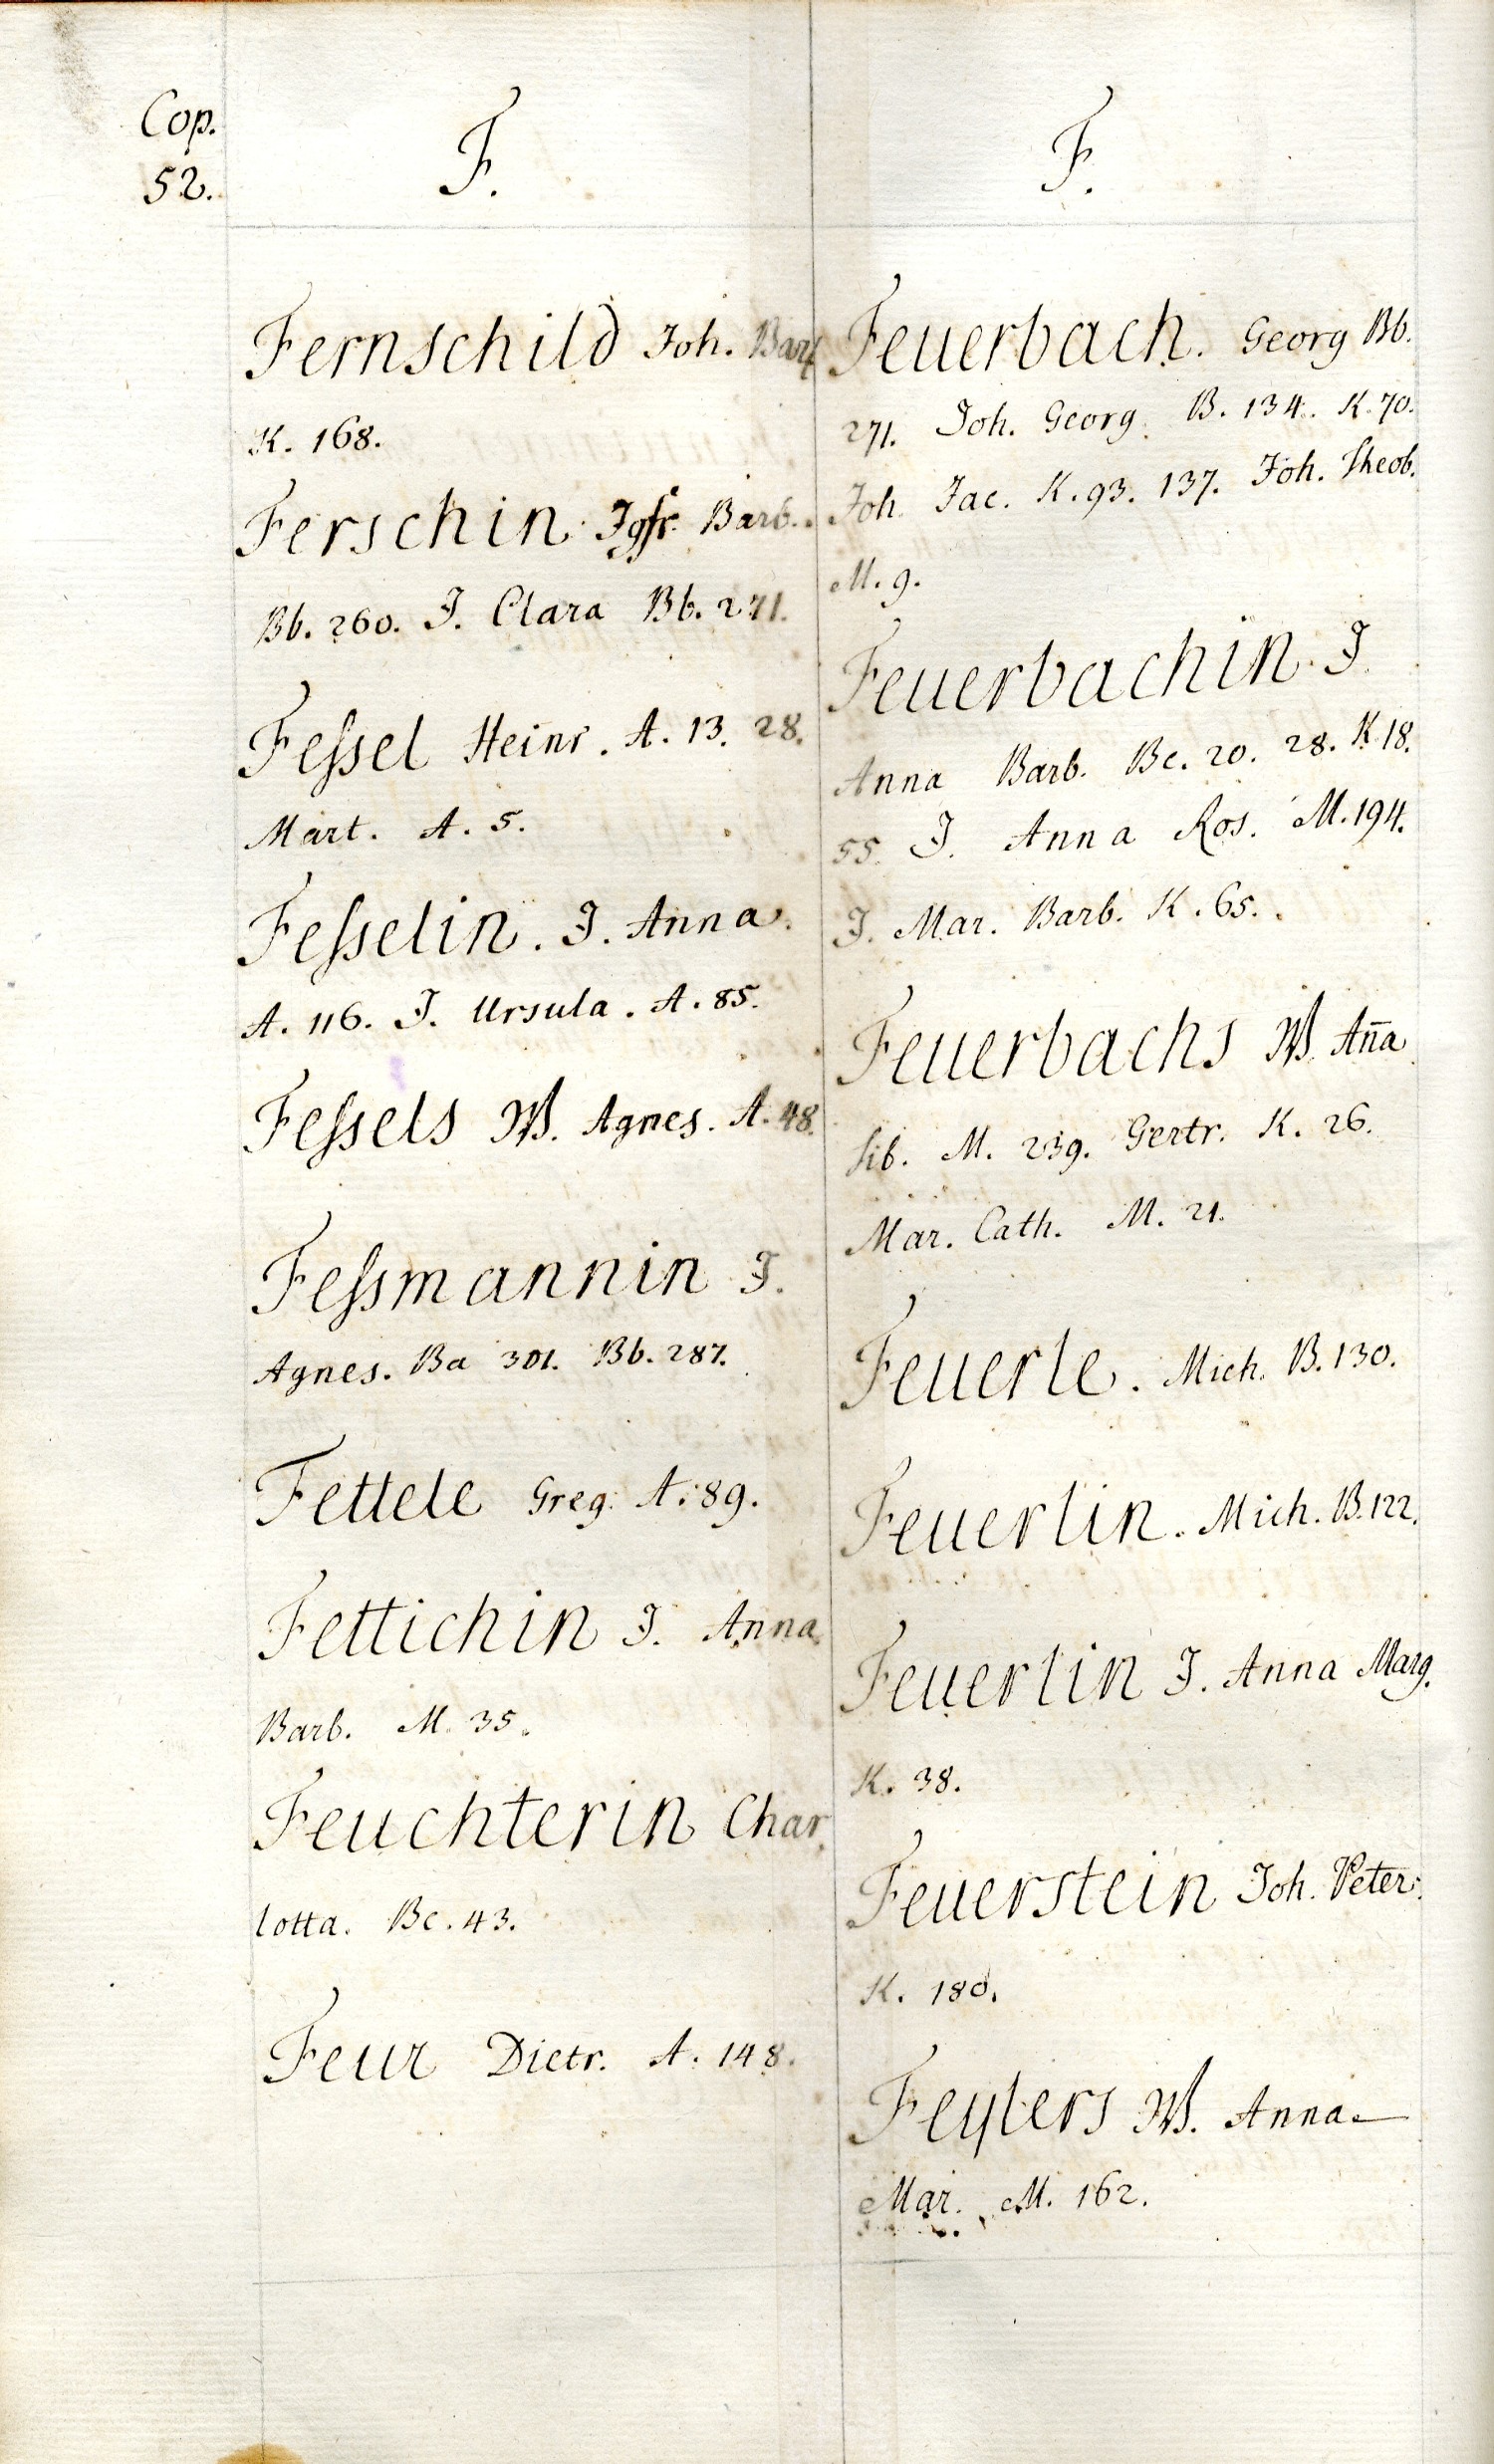 Cop.
52.
F.
Fernschild Joh. Bar
K. 168.
Ferschin Jgfr. Barb.
Bb. 260. J. Clara Bb. 271.
Feſsel Heinr. A. 13. 28.
Mart. A. 5.
Feſselin. J. Anna.
A. 116. J. Ursula. A. 85.
Feſsels W. Agnes. A. 48.
Feſsmannin J.
Agnes. Ba 301. Bb. 287.
Fettele Greg. A. 89.
Fettichin J. Anna
Barb. M. 35.
Feuchterin Char
lotta. Bc. 43.
Feur Dietr. A. 148.
F.
Feuerbach. Georg Bb.
271. Joh. Georg. B. 134. K. 70.
Joh. Jac. K. 93. 137. Joh. Theob.
M. 9.
Feuerbachin. J
Anna Barb. Bc. 20. 28. K. 18.
55. J. Anna Ros. M. 194.
J. Mar. Barb. K. 65.
Feuerbachs W. An̄a
Sib. M. 239. Gertr. K. 26.
Mar. Cath. M. 21.
Feuerle. Mich. B. 130.
Feuerlin. Mich. B. 122.
Feuerlin J. Anna Marg.
K. 38.
Feuerstein Joh. Peter.
K. 180.
Feylers W. Anna
Mar. M. 162.